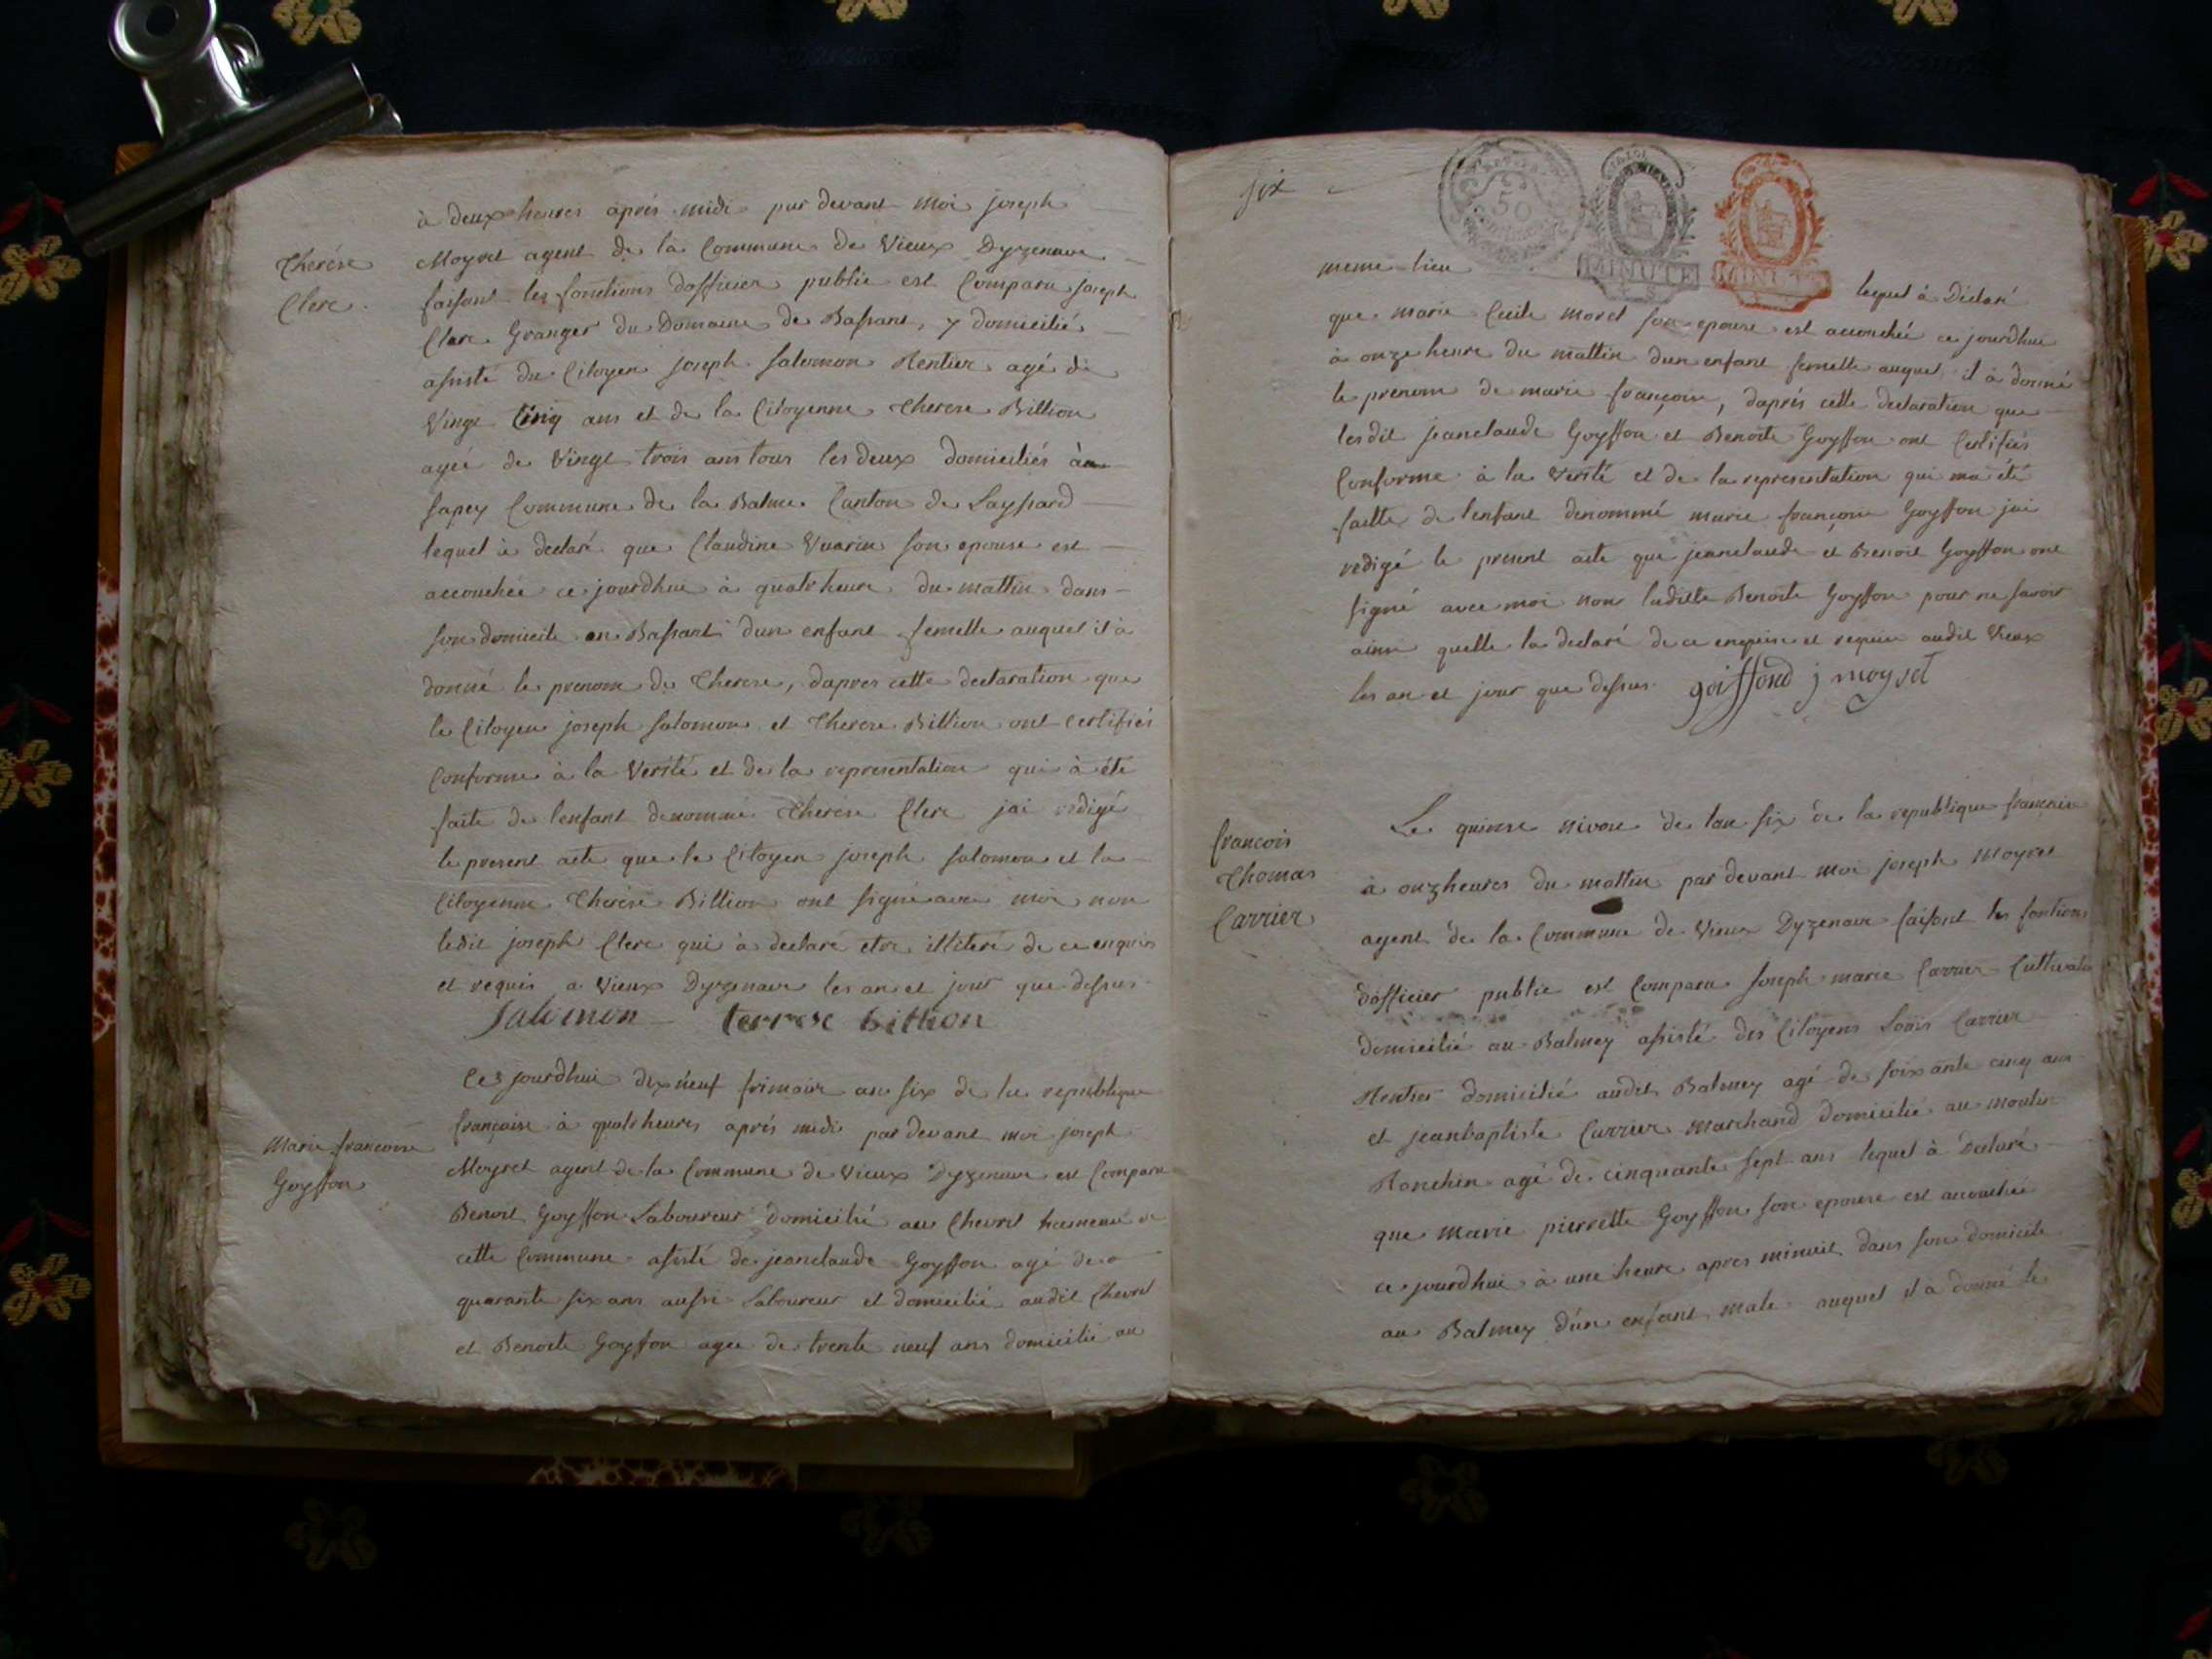 à deux heures aprés midi par devant moi joseph
Therése
Clerc.
Moyret agent de la Commune de Vieux Dyzenave
faisant les fonctions dofficier public est Comparu joseph
Clerc Granger du Domaine de Bassant, y domicilié
assisté du Citoyen joseph salomon Rentier agé de
Vingt Cinq ans et de la Citoyenne Therese Billion
agée de Vingt trois ans tous les deux domiciliés au
sapey Commune de la Balme Canton de Leyssard
lequel à declaré que Claudine Vuarin son epouse est
accouchée ce jourdhui à quatr heure du mattin dans
son domicile en Bassant dun enfant femelle auquel il à
donné le prenom de Therese, dapres cette declaration que
le Citoyen joseph salomon et Therese Billion ont certifiés
Conforme à la Verité et de la representation qui à été
faite de lenfant denommé Therese Clerc jai redigé
le present acte que le Citoyen joseph salomon et la
Citoyenne Therése Billion ont signé avec moi non
ledit joseph Clerc qui à declaré etre illiteré de ce enquis
et requis a Vieux Dyzenave les an et jour que dessus
Salomon terrese billion
Ce jourdhui dix neuf frimaire an six de la republique
française à quatr heures aprés midi par devant moi joseph
Marie francoise
Goyffon
Moyret agent de la Commune de Vieux Dyzenave est Comparu
Benoit Goyffon Laboureur domicilié au Chevril hameau de
cette Commune assisté de jeanclaude Goyffon agé de
quarante six ans aussi Laboureur et domicilié audit Chevril
et Benoite Goyffon agee de trente neuf ans domicilié au
six
50
MINUTE
MINUTE
meme lieu lequel à Déclaré
que marie Cecile morel son epouse est accouchée ce jourdhui
à onze heure du mattin dun enfant femelle auquel il à donné
le prenom de marie françoise, daprés cette declaration que
lesdit jeanclaude Goyffon et Benoite Goyffon ont Certifiés
Conforme à la Verité et de la representation qui ma été
faitte de lenfant denommé marie françoise Goyffon jai
redigé le present acte que jeanclaude et Benoit Goyffon ont
signé avec moi non laditte Benoite Goyffon pour ne savoir
ainsi quelle la declaré de ce enquise et requise audit Vieux
les an et jour que dessus goiffond j moyret
francois
Thomas
Carrier
Le quinse nivose de lan six de la republique francaise
à onzheures du mattin par devant moi joseph Moyret
agent de la Commune de Vieux Dyzenave faisant les fontions
dofficier public est Comparu joseph marie Carrier Cultivateur
domicilié au Balmey assisté des Citoyens Louis Carrier
Rentier domicilié audit Balmey agé de soixante cinq ans
et jeanbaptiste Carrier marchand domicilié au moulin
Ronchin agé de cinquante sept ans lequel à declaré
que marie pierrette Goyffon son epouse est accouchée
ce jourdhui à une heure apres minuit dans son domicile
au Balmey dún enfant male auquel il a donné le